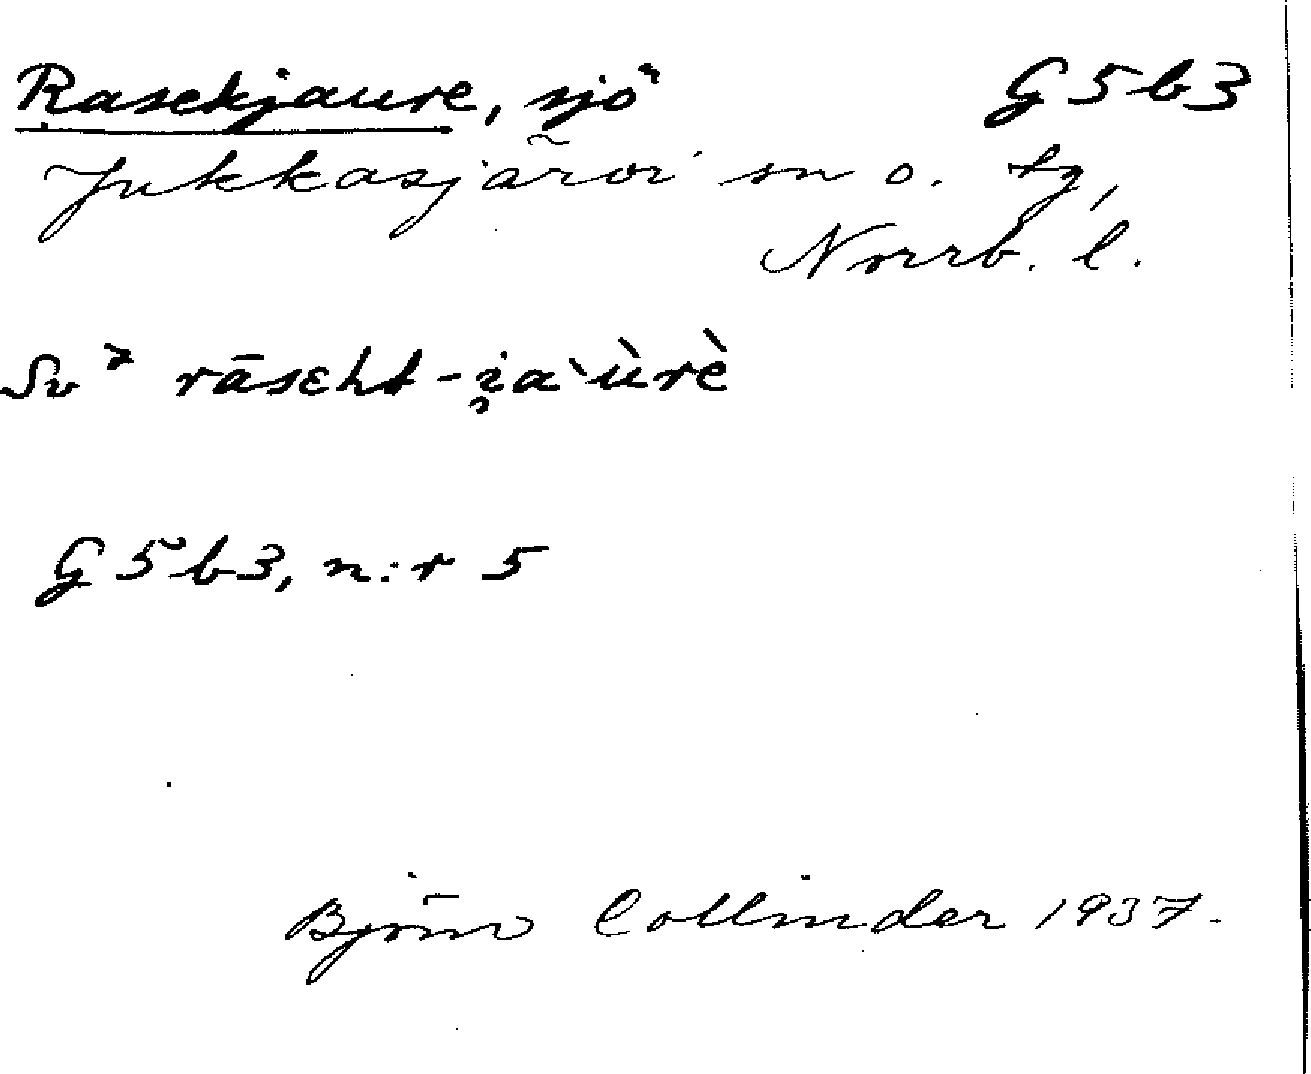 Rasekjaure, sjö G5b3
Jukkasjärvi sn o. tg,
Norrb. l.
Sv> rāsɛht-i̯a`ùrè
G5b3, n:r 5
Björn Collinder 1937.